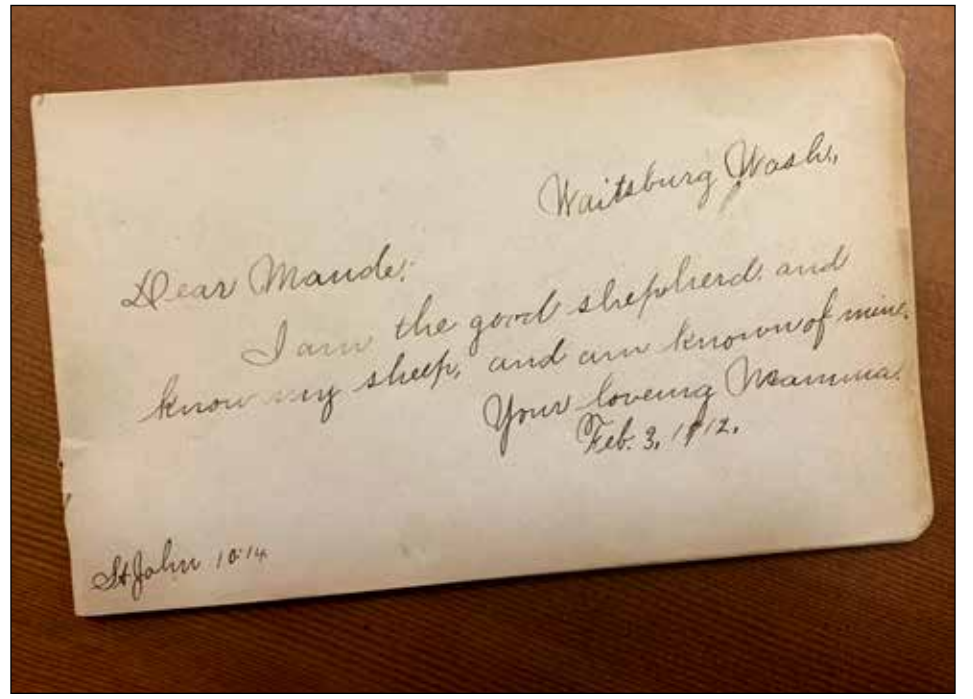 Waitsburg Wash.,
Dear Maude:
I am the good shepherd and
know my sheep, and am known of mine.
Your loveing Mamma.
Feb. 3, 1912.
St John 10:14